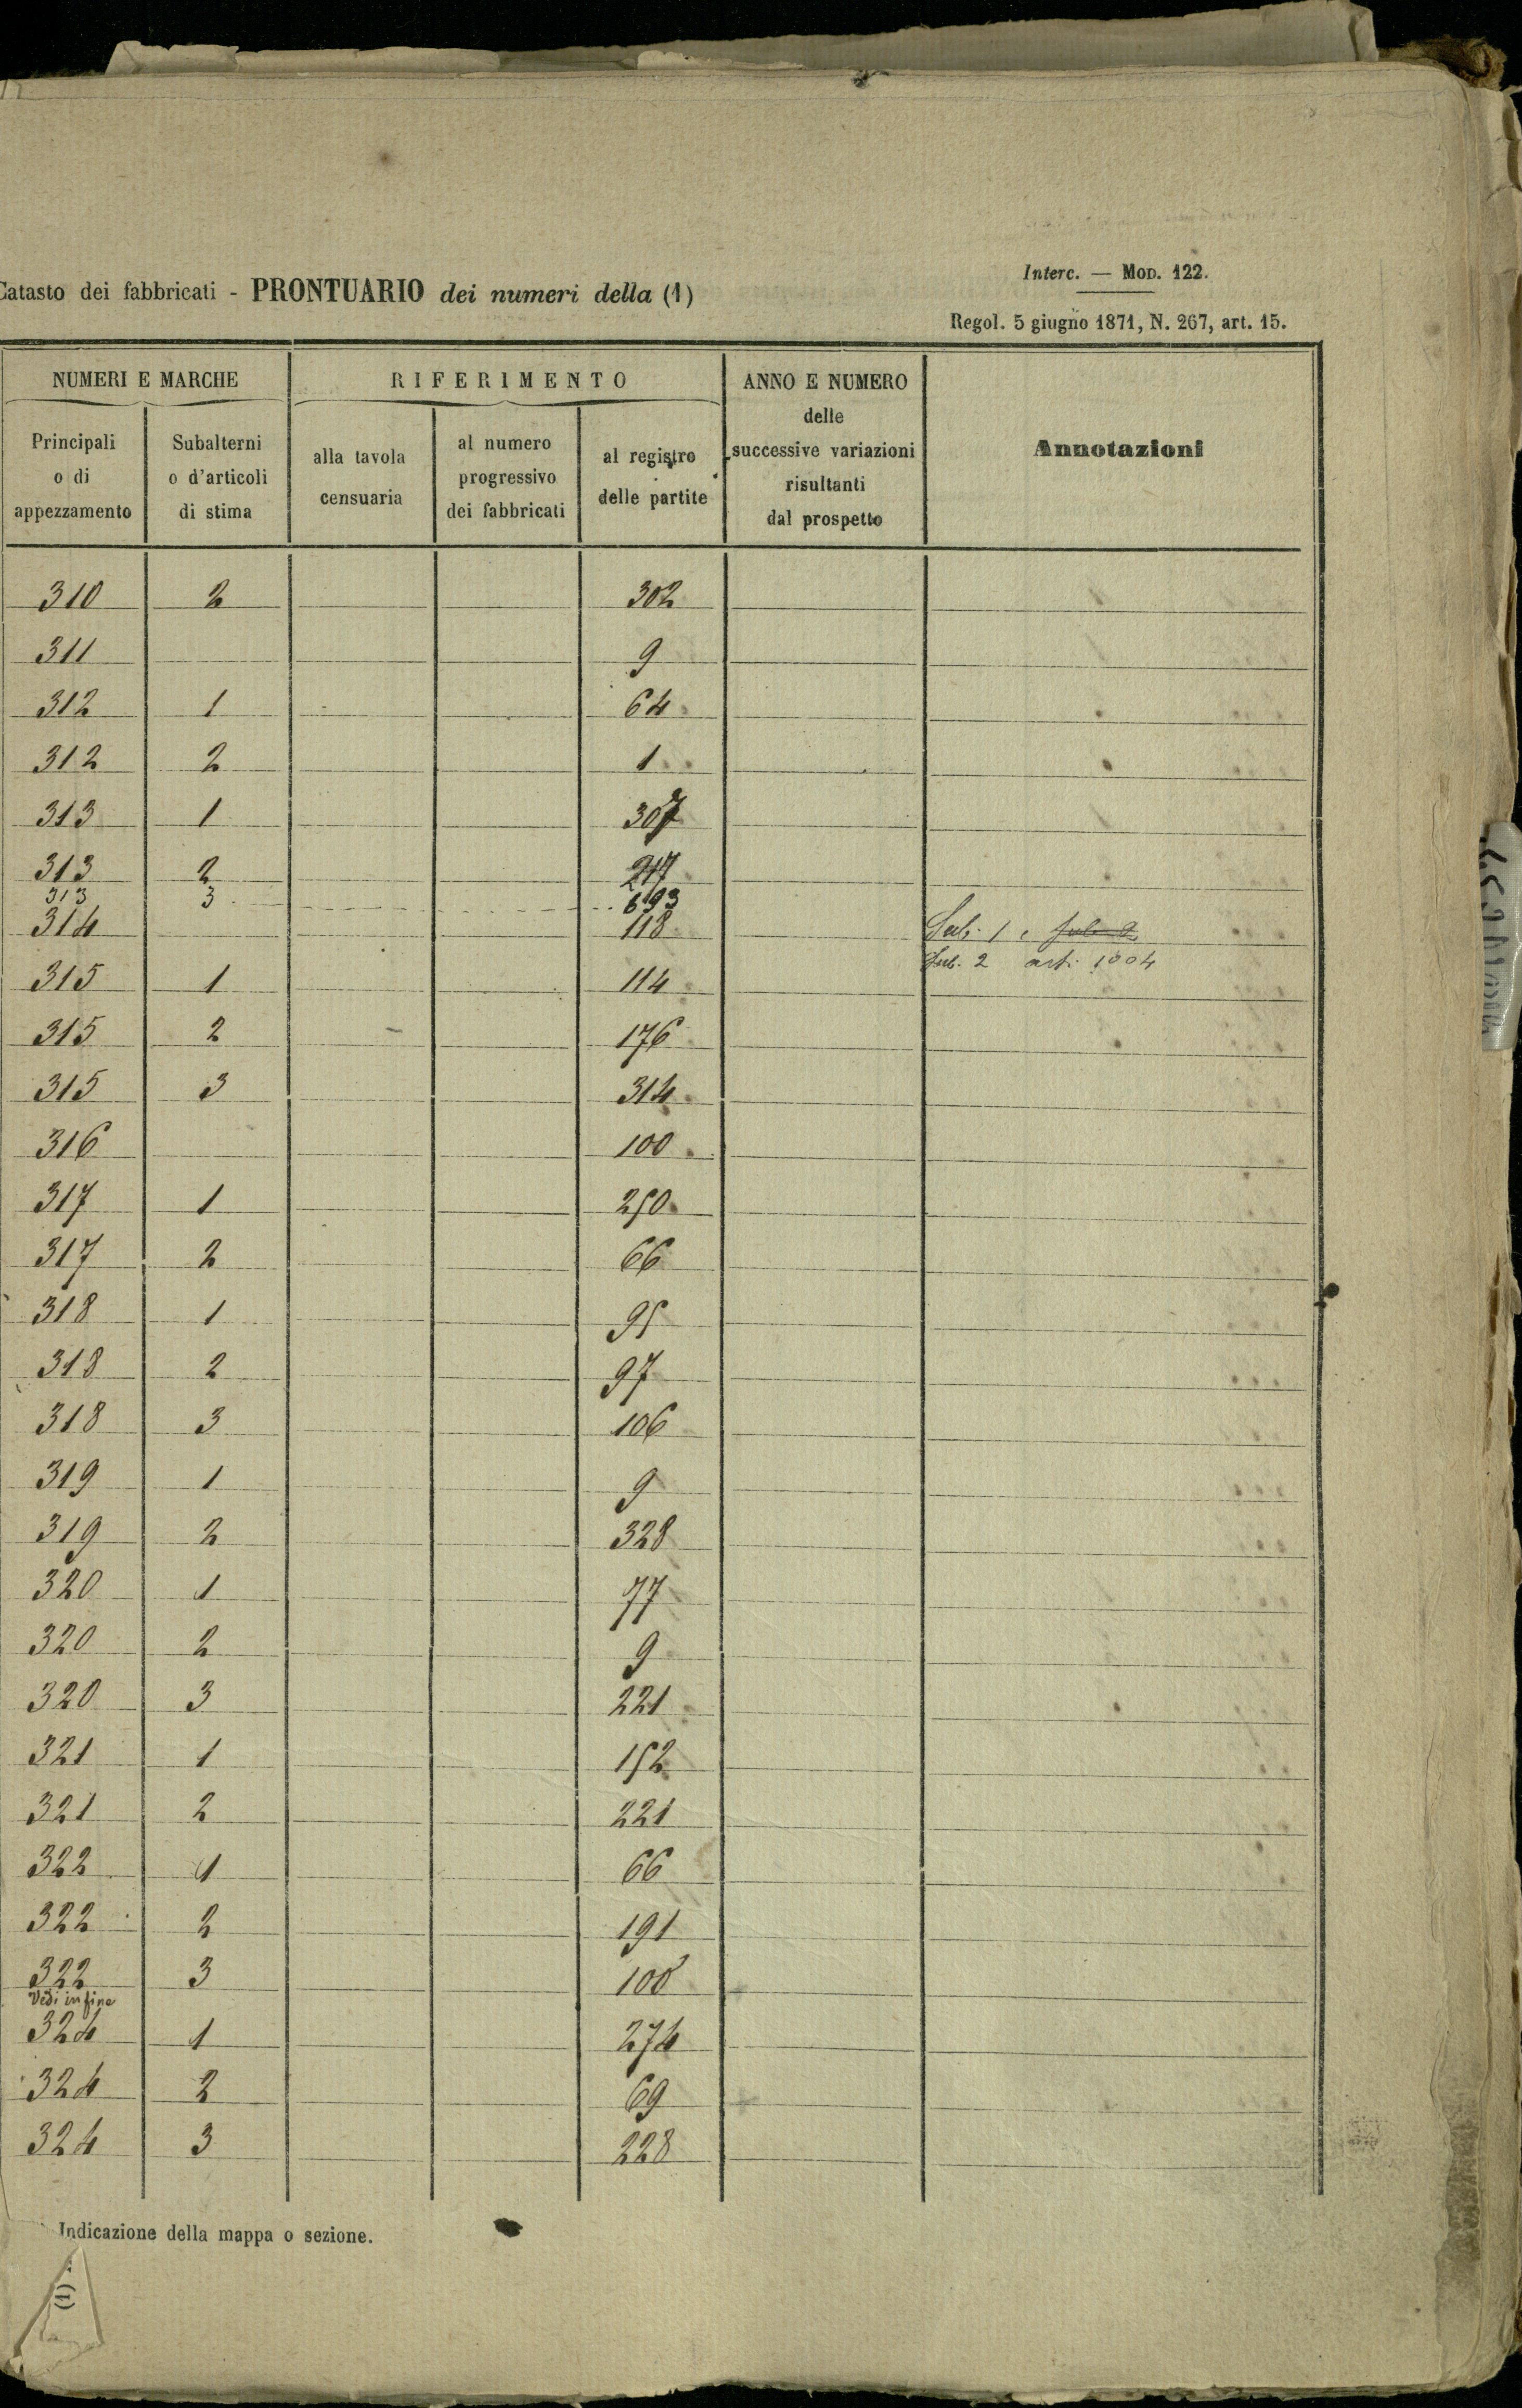 Interc. — Mod. 122.
Catasto dei fabbricati - PRONTUARIO dei numeri della (1)
Regol. 5 giugno 1871, N. 267, art. 15.
NUMERI E MARCHE
RIFERIMENTO
ANNO E NUMERO
delle
successive variazioni
risultanti
dal prospetto
Annotazioni
Principali
o di
appezzamento
Subalterni
o d'articoli
di stima
alla tavola
censuaria
al numero
progressivo
dei fabbricati
al registro
delle partite
310 2 302
311 9
312 1 64
312 2 1
313 1 307
313 2 217
313 3 693
314 118 Sub. 1 e sub. 2
Sub. 2 art. 1004
315 1 114
315 2 176
315 3 314
316 100
317 1 250
317 2 66
318 1 95
318 2 97
318 3 106
319 1 9
319 2 328
320 1 77
320 2 9
320 3 221
321 1 152
321 2 221
322 1 66
322 2 191
322 3 100
Vedi in fine
324 1 274
324 2 69
324 3 228
Indicazione della mappa o sezione.
(1)